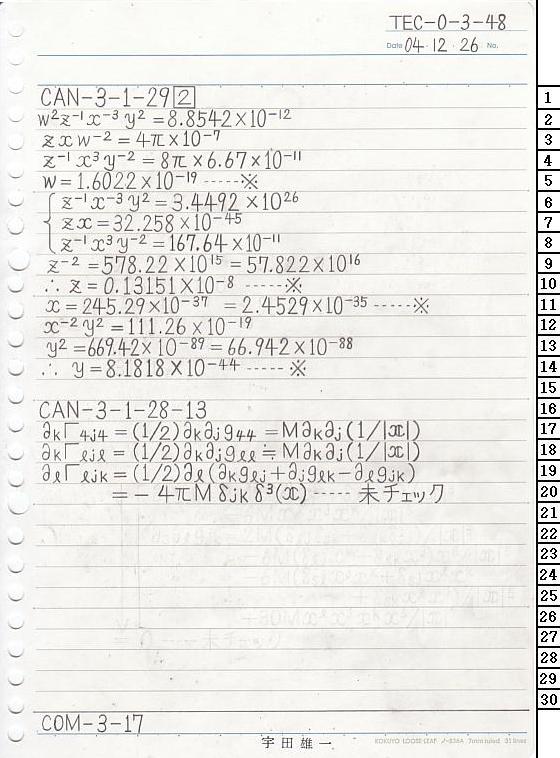 TEC-0-3-48
Date 04・12・26 No.
CAN-3-1-29 [2]
w²z⁻¹x⁻³y² = 8.8542×10⁻¹²
zxw⁻² = 4π×10⁻⁷
z⁻¹x³y⁻² = 8π×6.67×10⁻¹¹
w = 1.6022×10⁻¹⁹ -----※
z⁻¹x⁻³y² = 3.4492×10²⁶
zx = 32.258×10⁻⁴⁵
z⁻¹x³y⁻² = 167.64×10⁻¹¹
z⁻² = 578.22×10¹⁵ = 57.822×10¹⁶
∴ z = 0.13151×10⁻⁸ -----※
x = 245.29×10⁻³⁷ = 2.4529×10⁻³⁵ -----※
x⁻²y² = 111.26×10⁻¹⁹
y² = 669.42×10⁻⁸⁹ = 66.942×10⁻⁸⁸
∴ y = 8.1818×10⁻⁴⁴ -----※
CAN-3-1-28-13
∂kΓ4j4 = (1/2)∂k∂jg44 = M∂k∂j(1/|x|)
∂kΓljl = (1/2)∂k∂jgll ≒ M∂k∂j(1/|x|)
∂lΓljk = (1/2)∂l(∂kglj+∂jglk−∂lgjk)
= −4πMδjkδ³(x) ----- 未チェック
COM-3-17
宇田雄一
KOKUYO LOOSE-LEAF ノ-836A 7mm ruled 31 lines
1
2
3
4
5
6
7
8
9
10
11
12
13
14
15
16
17
18
19
20
21
22
23
24
25
26
27
28
29
30